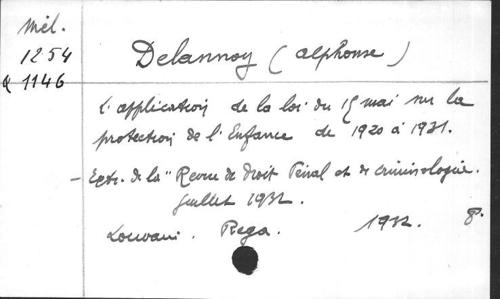 Mél.
1254
Q 1146
Delannoy (Alphonse)
L'application de la loi du 15 mai sur la
protection de l'Enfance de 1920 à 1931.
- Extr. de la "Revue de Droit Pénal et de criminologie.
Juillet 1932.
Louvain. Rega. 1932. 8°.